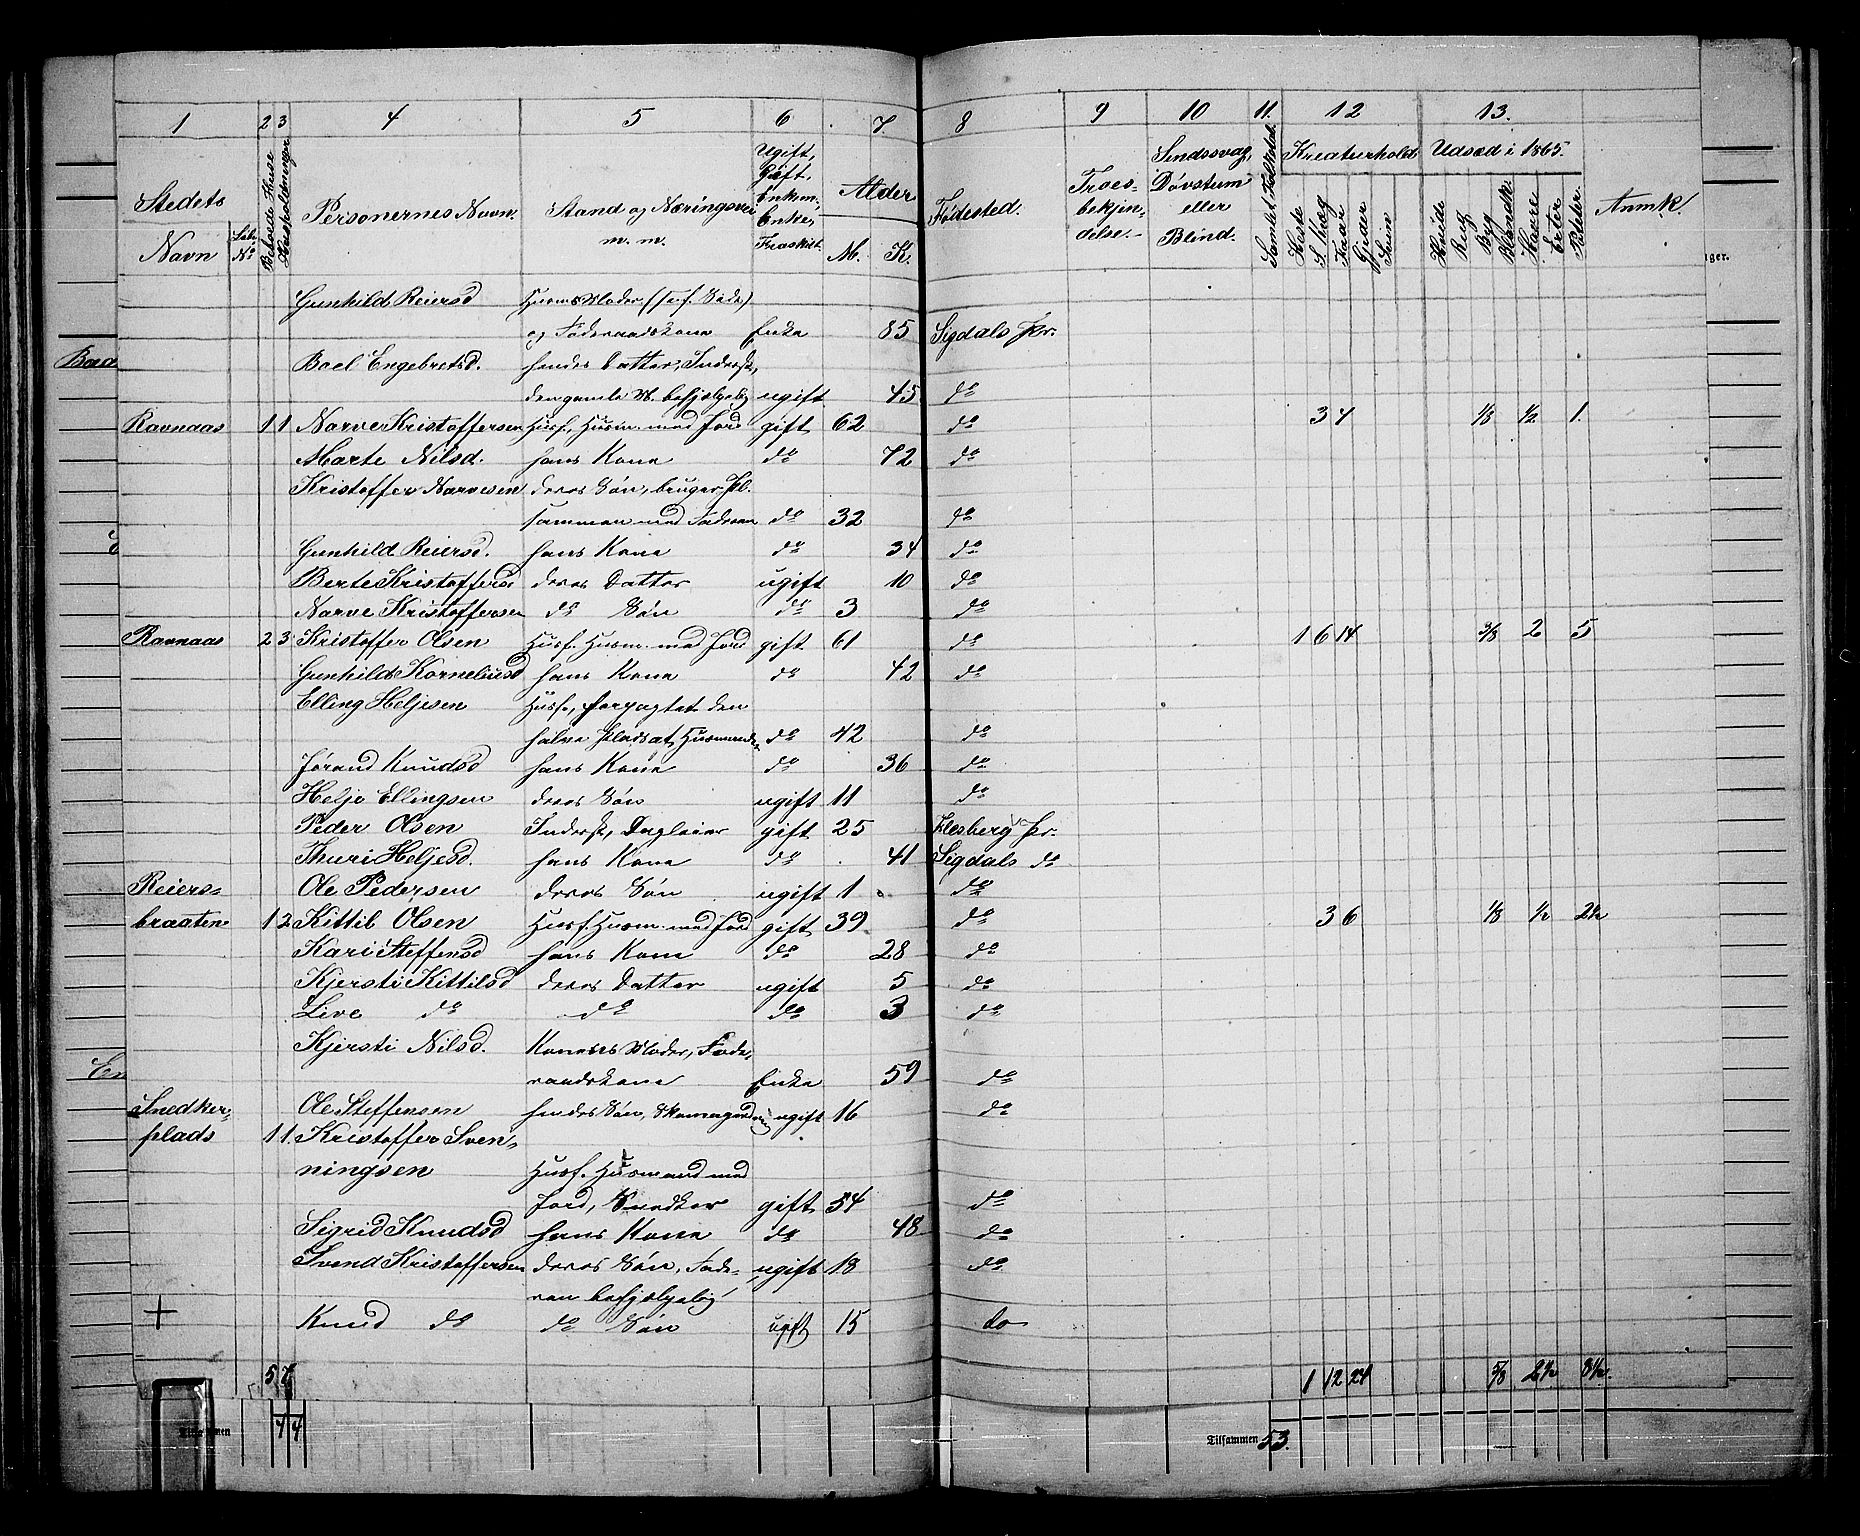 1 2 3 4 5 6 7. 8 9 10 11. 12 13.
Stedets Navn Løbe No Beboede Huse Husholdninger Personernes Navn. Stand og Næringsvei m. m. Ugift, Gift, Enkem., Enke, Fraskilt. Alder M. K. Fødested. Troes- bekjen- delse. Sindssvag, Døvstum eller Blind. Samlet Folketal. Kreaturhold Heste S. Kvæg Faar Gjeder Svin Udsæd i 1865. Hvide Rug Byg Blandk. Havre Erter Poteter Anmk.
Gunhild Reiersd Husms Moder
og Føderaadskone Enke 85 Sigdals Pr.
Boel Engebretsd. hendes Datter, Inderst,
den gamle M. behjælpelig ugift 45 do
Ravnaas 1 1 Narve Kristoffersen Husf., Husm. med Jord gift 62 do 3 4 1/8 1/2 1.
Marte Nilsd. hans Kone do 72 do
Kristoffer Narvesen deres Søn, bruger Pl.
sammen med Faderen do 32 do
Gunhild Reiersd. hans Kone do 34 do
Berte Kristoffersd deres Datter ugift 10 do
Narve Kristoffersen do Søn do 3 do
Ravnaas 2 3 Kristoffer Olsen Husf. Husm. med Jord gift 61 do 1 6 14 3/8 2 5
Gunhild Korneliusd hans Kone do 42 do
Elling Heljesen Husf., forpagtet den
halve Pladsat, Husmands do 42 do
Jørand Knudsd hans Kone do 36 do
Helje Ellingsen deres Søn ugift 11 do
Peder Olsen Inderst, Dagleier gift 25 Flesberg Pr.
Thuri Heljesd. hans Kone do 41 Sigdals do
Reiers- Ole Pedersen deres Søn ugift 1 do
braaten 1 2 Kittil Olsen Husf. Husm. med Jord gift 39 do 3 6 1/8 1/2 2 1/2
Kari Steffensd hans Kone do 28 do
Kjersti Kittilsd deres Datter ugift 5 do
Live do do do 3 do
Kjersti Nilsd. Konens Moder, Føde-
raadskone Enke 59 do
Snedker- Ole Steffensen hendes Søn, ugift 16 do
plads 1 1 Kristoffer Sven-
ningsen Husf. Husmand med
Jord, Snedker gift 54 do
Sigrid Knudsd hans Kone do 48 do
Svend Kristoffersen deres Søn, Fade- ugift 18 do
ren behjælpelig
+ Knud do do Søn ugift 15 do
5 7 1 12 24 5/8 2 1/2 8 1/2.
Tilsammen 4 4 Tilsammen 53.